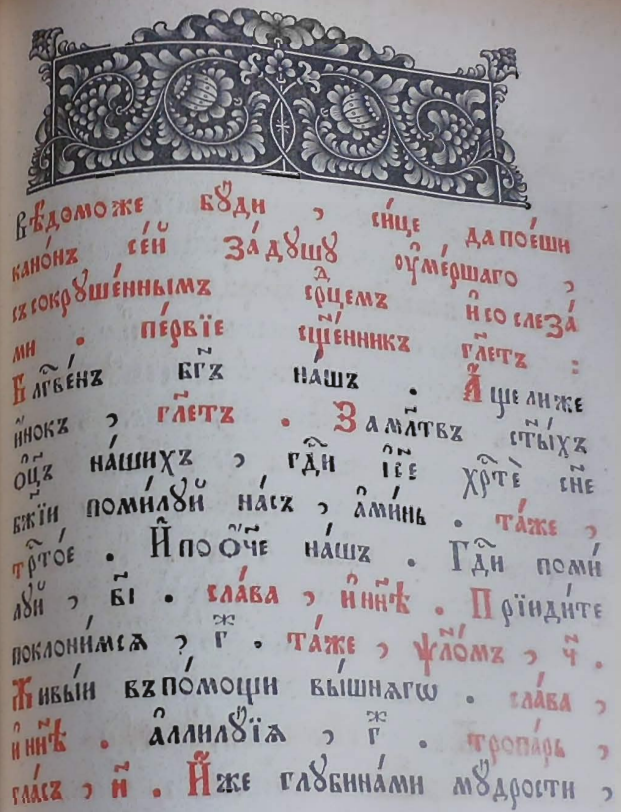 Вѣдомо же бꙋ́ди , си́це да пое́ши
кано́нъ се́й за́ дꙋшꙋ ᲂу҆ме́ршаго ,
съ сокрꙋше́ннымъ срⷣцемъ и҆ со слеза́
ми . пе́рвїе сщ҃е́нникъ гл҃етъ :
Блг҃ве́нъ бг҃ъ на́шъ . А҆́ще ли же
и҆́нокъ , гл҃етъ . За мл҃твъ ст҃ы́хъ
ѻ҆ц҃ъ на́шихъ , гдⷭ҇и і҆с҃е хрⷭ҇тѐ сн҃е
бж҃їи поми́лꙋй на́съ , а҆ми́нь . та́же ,
трⷭ҇то́е . И҆ по ѻ҆́ч҃е на́шъ . Гдⷭ҇и поми́
лꙋй , в҃і . сла́ва , и҆ нн҃ѣ . Прїиди́те
поклони́мсѧ , г҃ⷤ . та́же , ѱало́мъ , ч҃ .
Живы́и въ по́мощи вы́шнѧгѡ . сла́ва ,
и҆ нн҃ѣ . а҆ллилꙋ́їѧ , г҃ⷤ . тропа́рь ,
гла́съ , и҃ . И҆́же глꙋбина́ми мꙋ́дрости ,